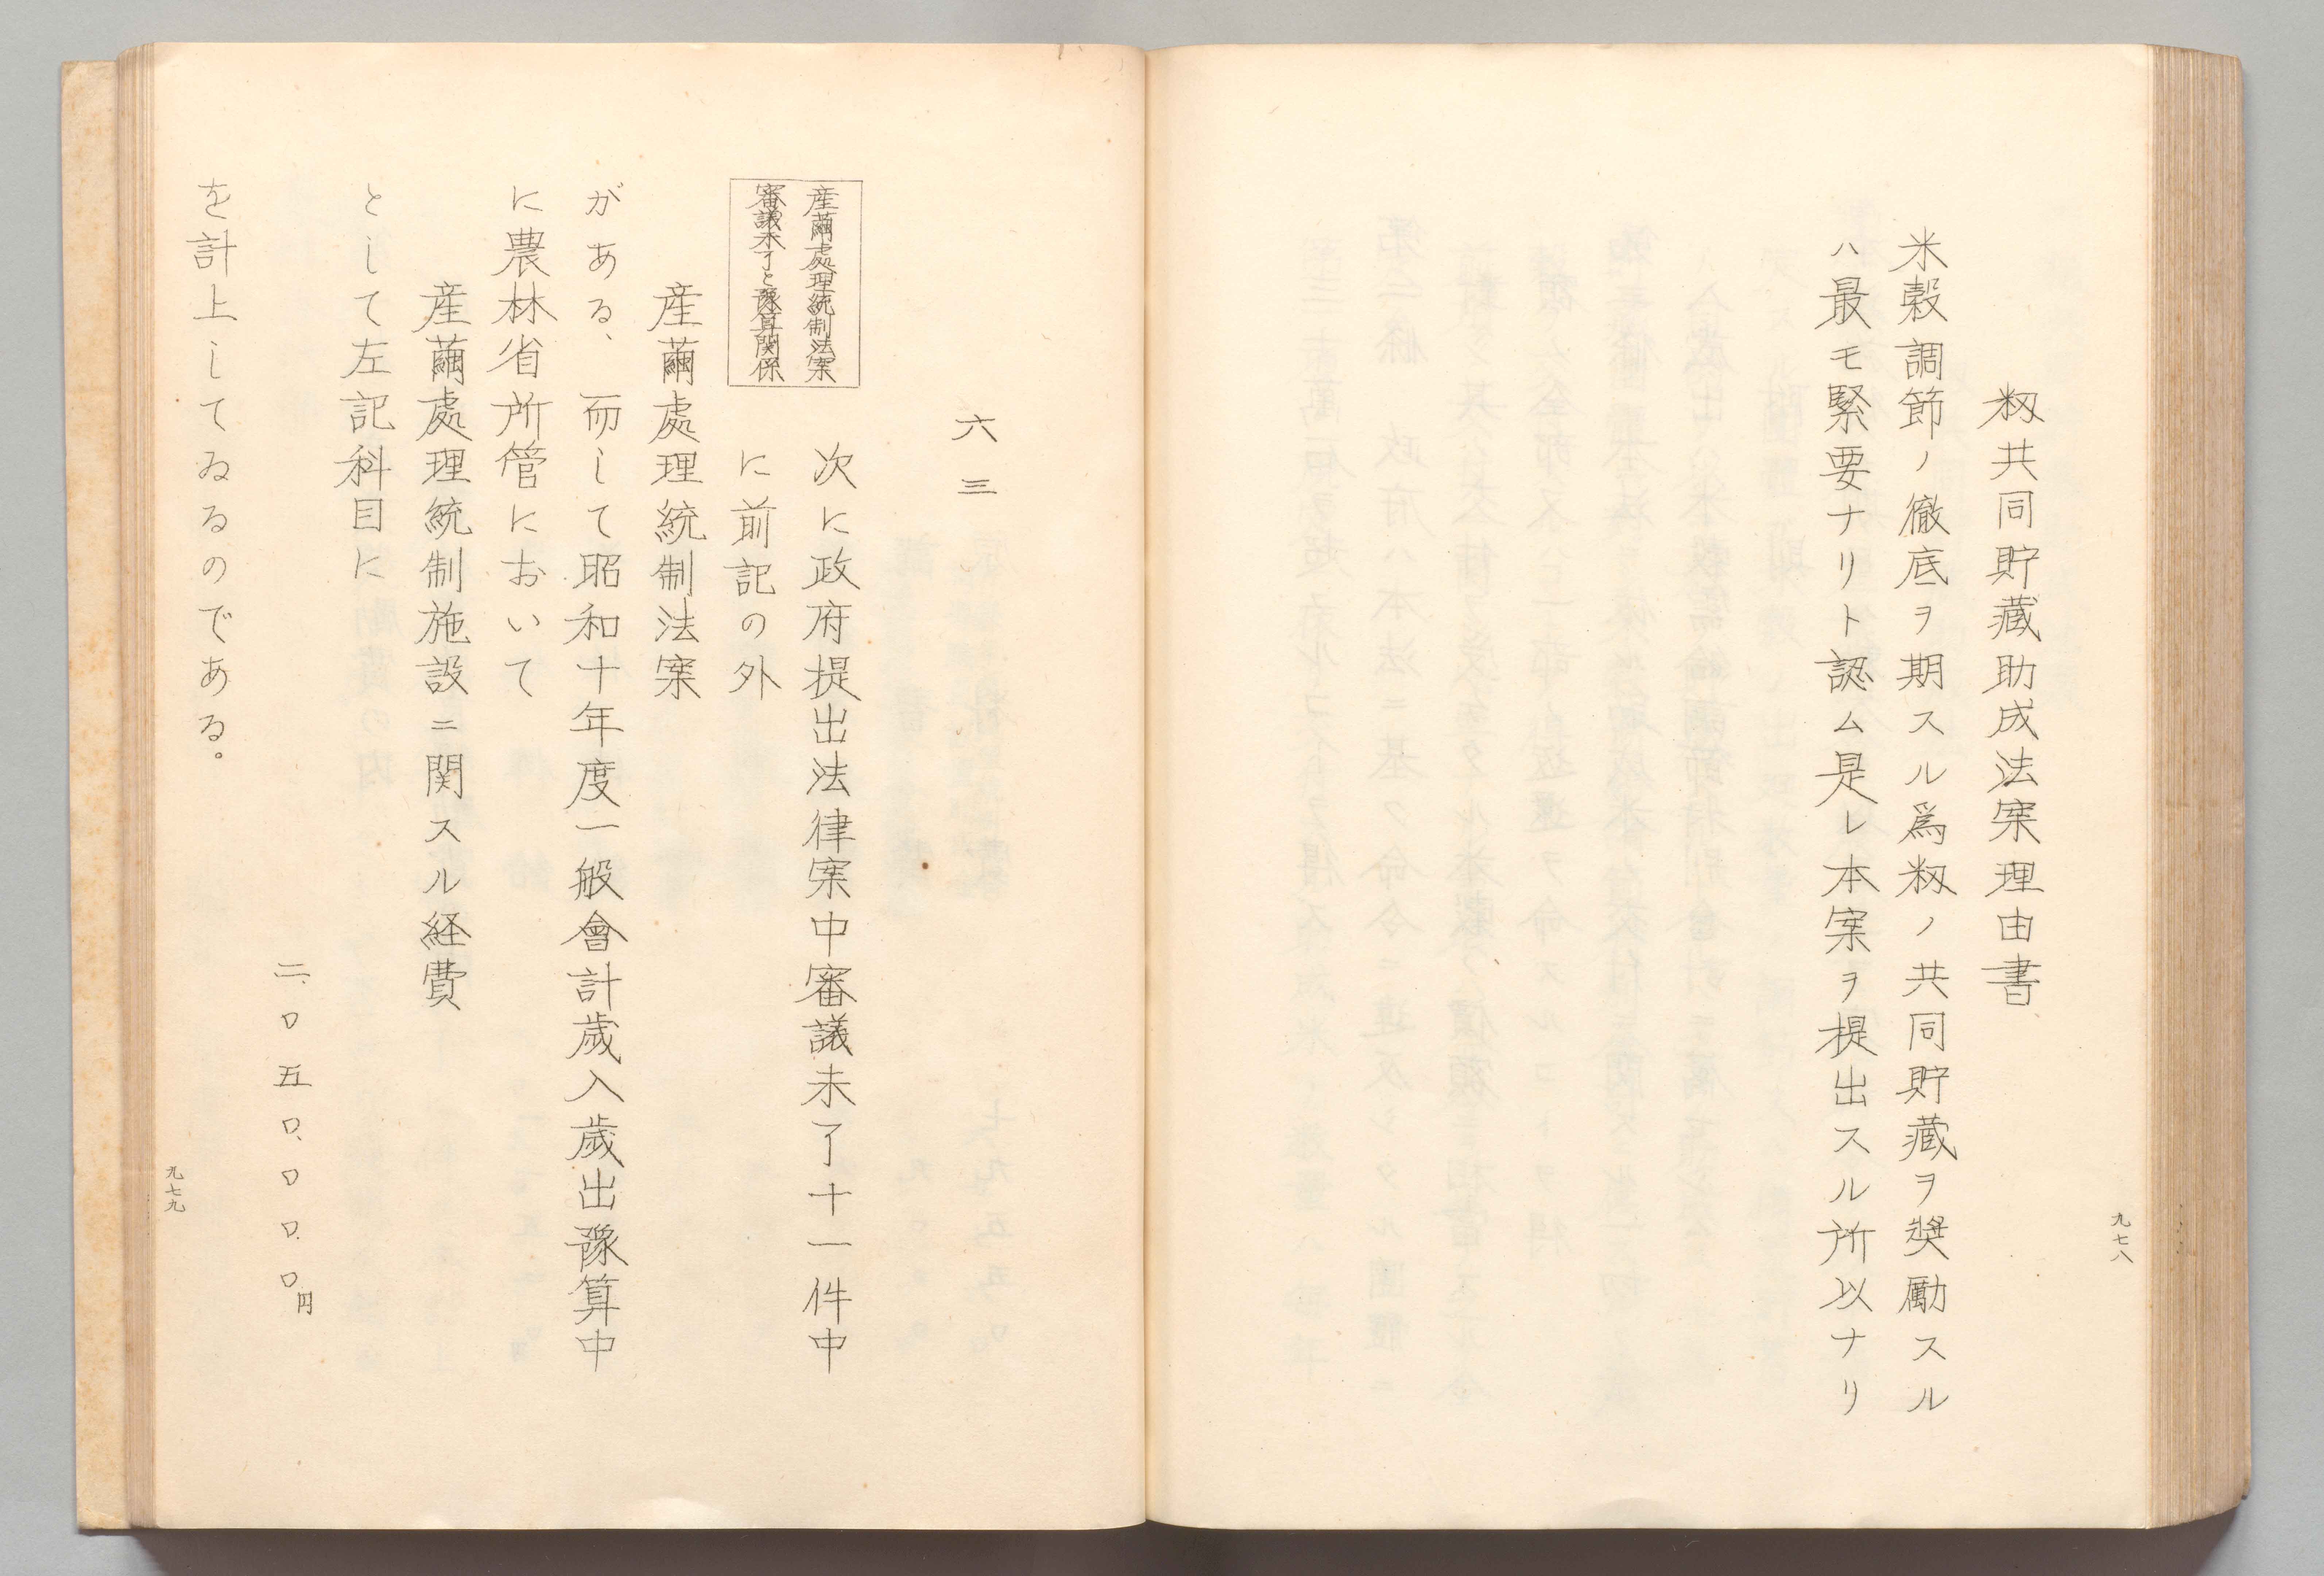 籾共同貯蔵助成法案理由書
米穀調節ノ徹底ヲ期スル爲籾ノ共同貯蔵ヲ奨励スル
ハ最モ緊要ナリト認ム是レ本案ヲ提出スル所以ナリ
九七八
六三
産繭處理統制法案
審議未了と豫算関係
次に政府提出法律案中審議未了十一件中
に前記の外
産繭處理統制法案
がある、而して昭和十年度一般會計歳入歳出豫算中
に農林省所管において
産繭處理統制施設ニ関スル経費
として左記科目に
二、〇五〇、〇〇〇円
を計上してゐるのである。
九七九